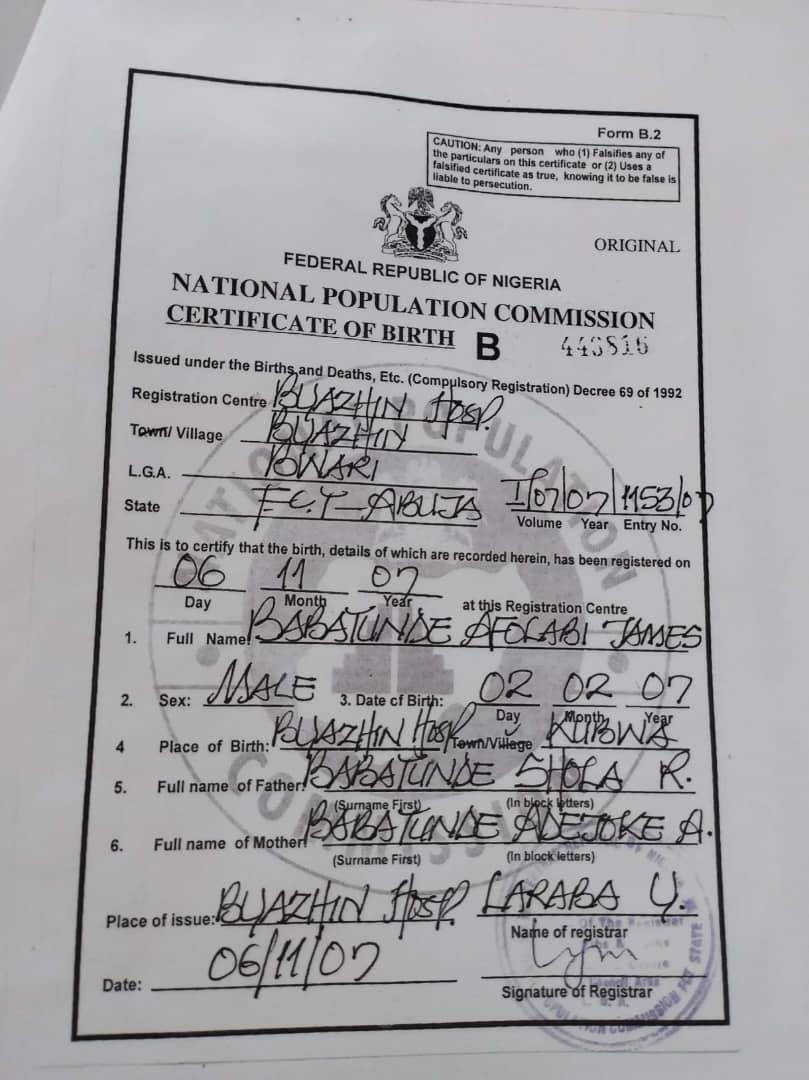 Form B.2
CAUTION: Any person who (1) Falsifies any of
the particulars on this certificate or (2) Uses a
falsified certificate as true, knowing it to be false is
liable to persecution.
ORIGINAL
FEDERAL REPUBLIC OF NIGERIA
NATIONAL POPULATION COMMISSION
CERTIFICATE OF BIRTH B 443816
Issued under the Births and Deaths, Etc. (Compulsory Registration) Decree 69 of 1992
Registration Centre BYAZHIN HOSP.
Town/ Village BYAZHIN
L.G.A. BWARI
State F.C.T-ABUJA I/07/07/1153/07
Volume Year Entry No.
This is to certify that the birth, details of which are recorded herein, has been registered on
06 11 07
Day Month Year at this Registration Centre
1. Full Name: BABATUNDE AFOLABI JAMES
2. Sex: MALE 3. Date of Birth: 02 02 07
Day Month Year
4 Place of Birth: BYAZHIN HOSP Town/Village KUBWA
5. Full name of Father: BABATUNDE SHOLA R.
(Surname First) (In block letters)
6. Full name of Mother: BABATUNDE ADEJOKE A.
(Surname First) (In block letters)
Place of issue: BYAZHIN HOSP LARABA Y.
Name of registrar
Date: 06/11/07
Signature of Registrar
NATIONAL POPULATION
COMMISSION